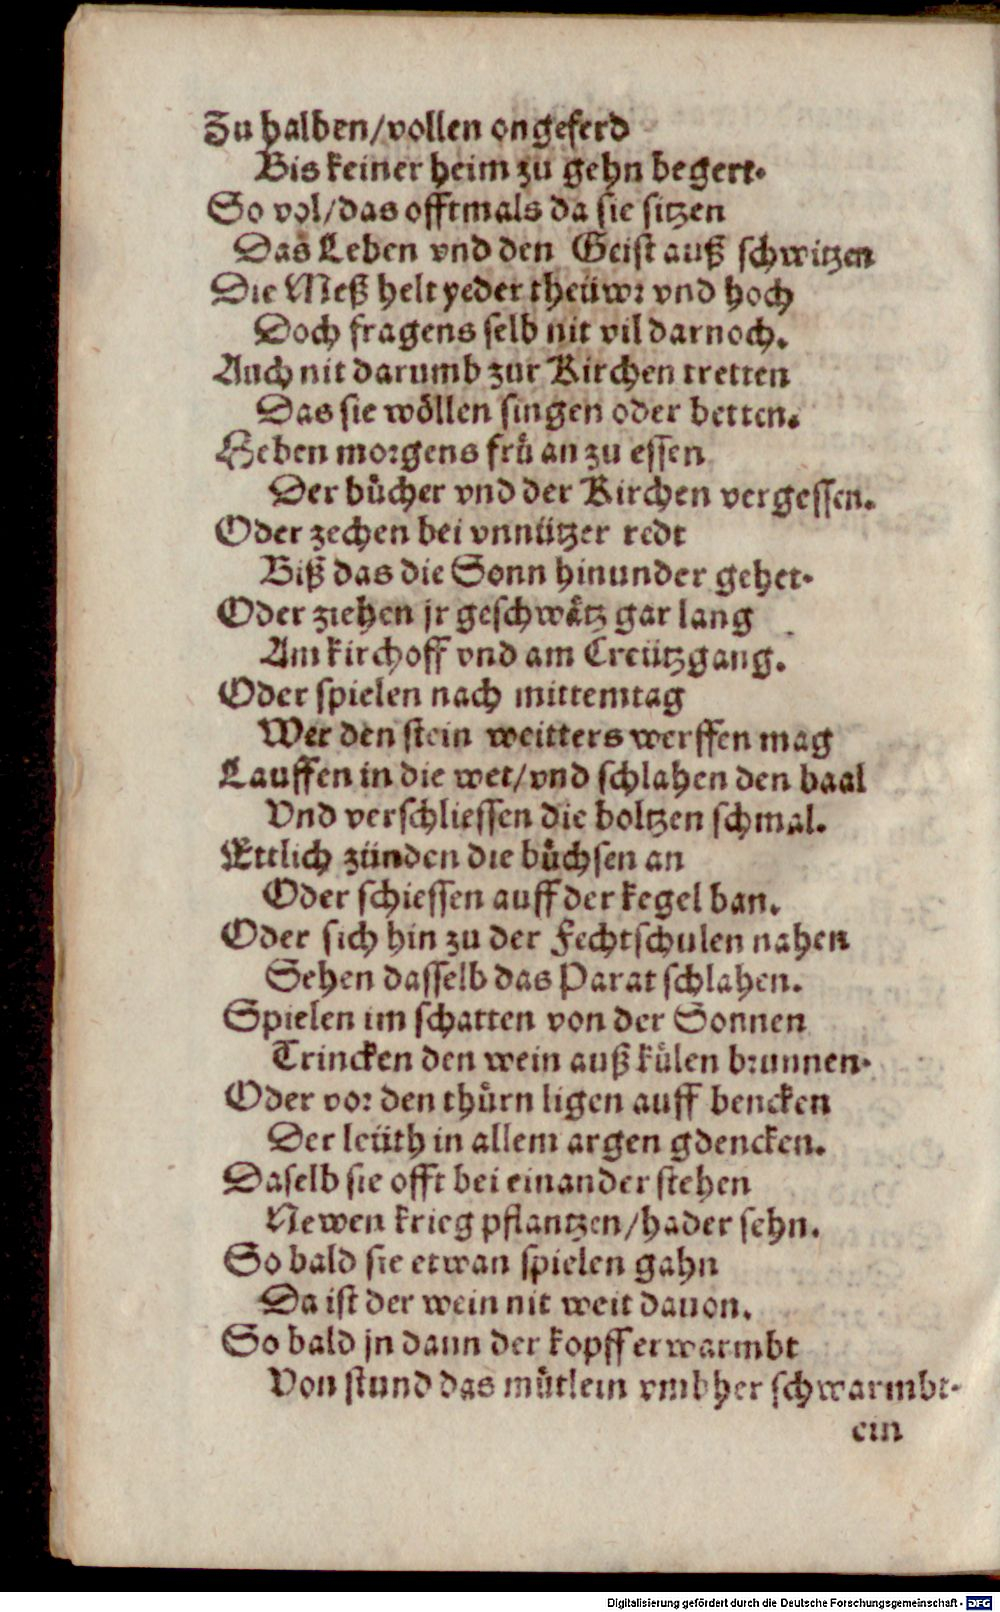 Zu halben/vollen ongeferd
Bis keiner heim zu gehn begert.
So vol/das offtmals da sie sitzen
Das Leben vnd den Geist auß schwitzen
Die Meß helt yeder theüwr vnd hoch
Doch fragens selb nit vil darnoch.
Auch nit darumb zur Kirchen tretten
Das sie wöllen singen oder betten.
Heben morgens frů an zu essen
Der bůcher vnd der Kirchen vergessen.
Oder zechen bei vnnützer redt
Biß das die Sonn hinunder gehet.
Oder ziehen jr geschwätz gar lang
Am kirchoff vnd am Creützgang.
Oder spielen nach mittemtag
Wer den stein weitters werffen mag
Lauffen in die wet/vnd schlahen den baal
Vnd verschliessen die boltzen schmal.
Ettlich zünden die bůchsen an
Oder schiessen auff der kegel ban.
Oder sich hin zu der Fechtschulen nahen
Sehen dasselb das Parat schlahen.
Spielen im schatten von der Sonnen
Trincken den wein auß külen brunnen.
Oder vor den thůrn ligen auff bencken
Der leüth in allem argen gdencken.
Daselb sie offt bei einander stehen
Newen krieg pflantzen/hader sehn.
So bald sie etwan spielen gahn
Da ist der wein nit weit dauon.
So bald jn dann der kopff erwarmbt
Von stund das můtlein vmbher schwarmbt.
ein
Digitalisierung gefördert durch die Deutsche Forschungsgemeinschaft - DFG